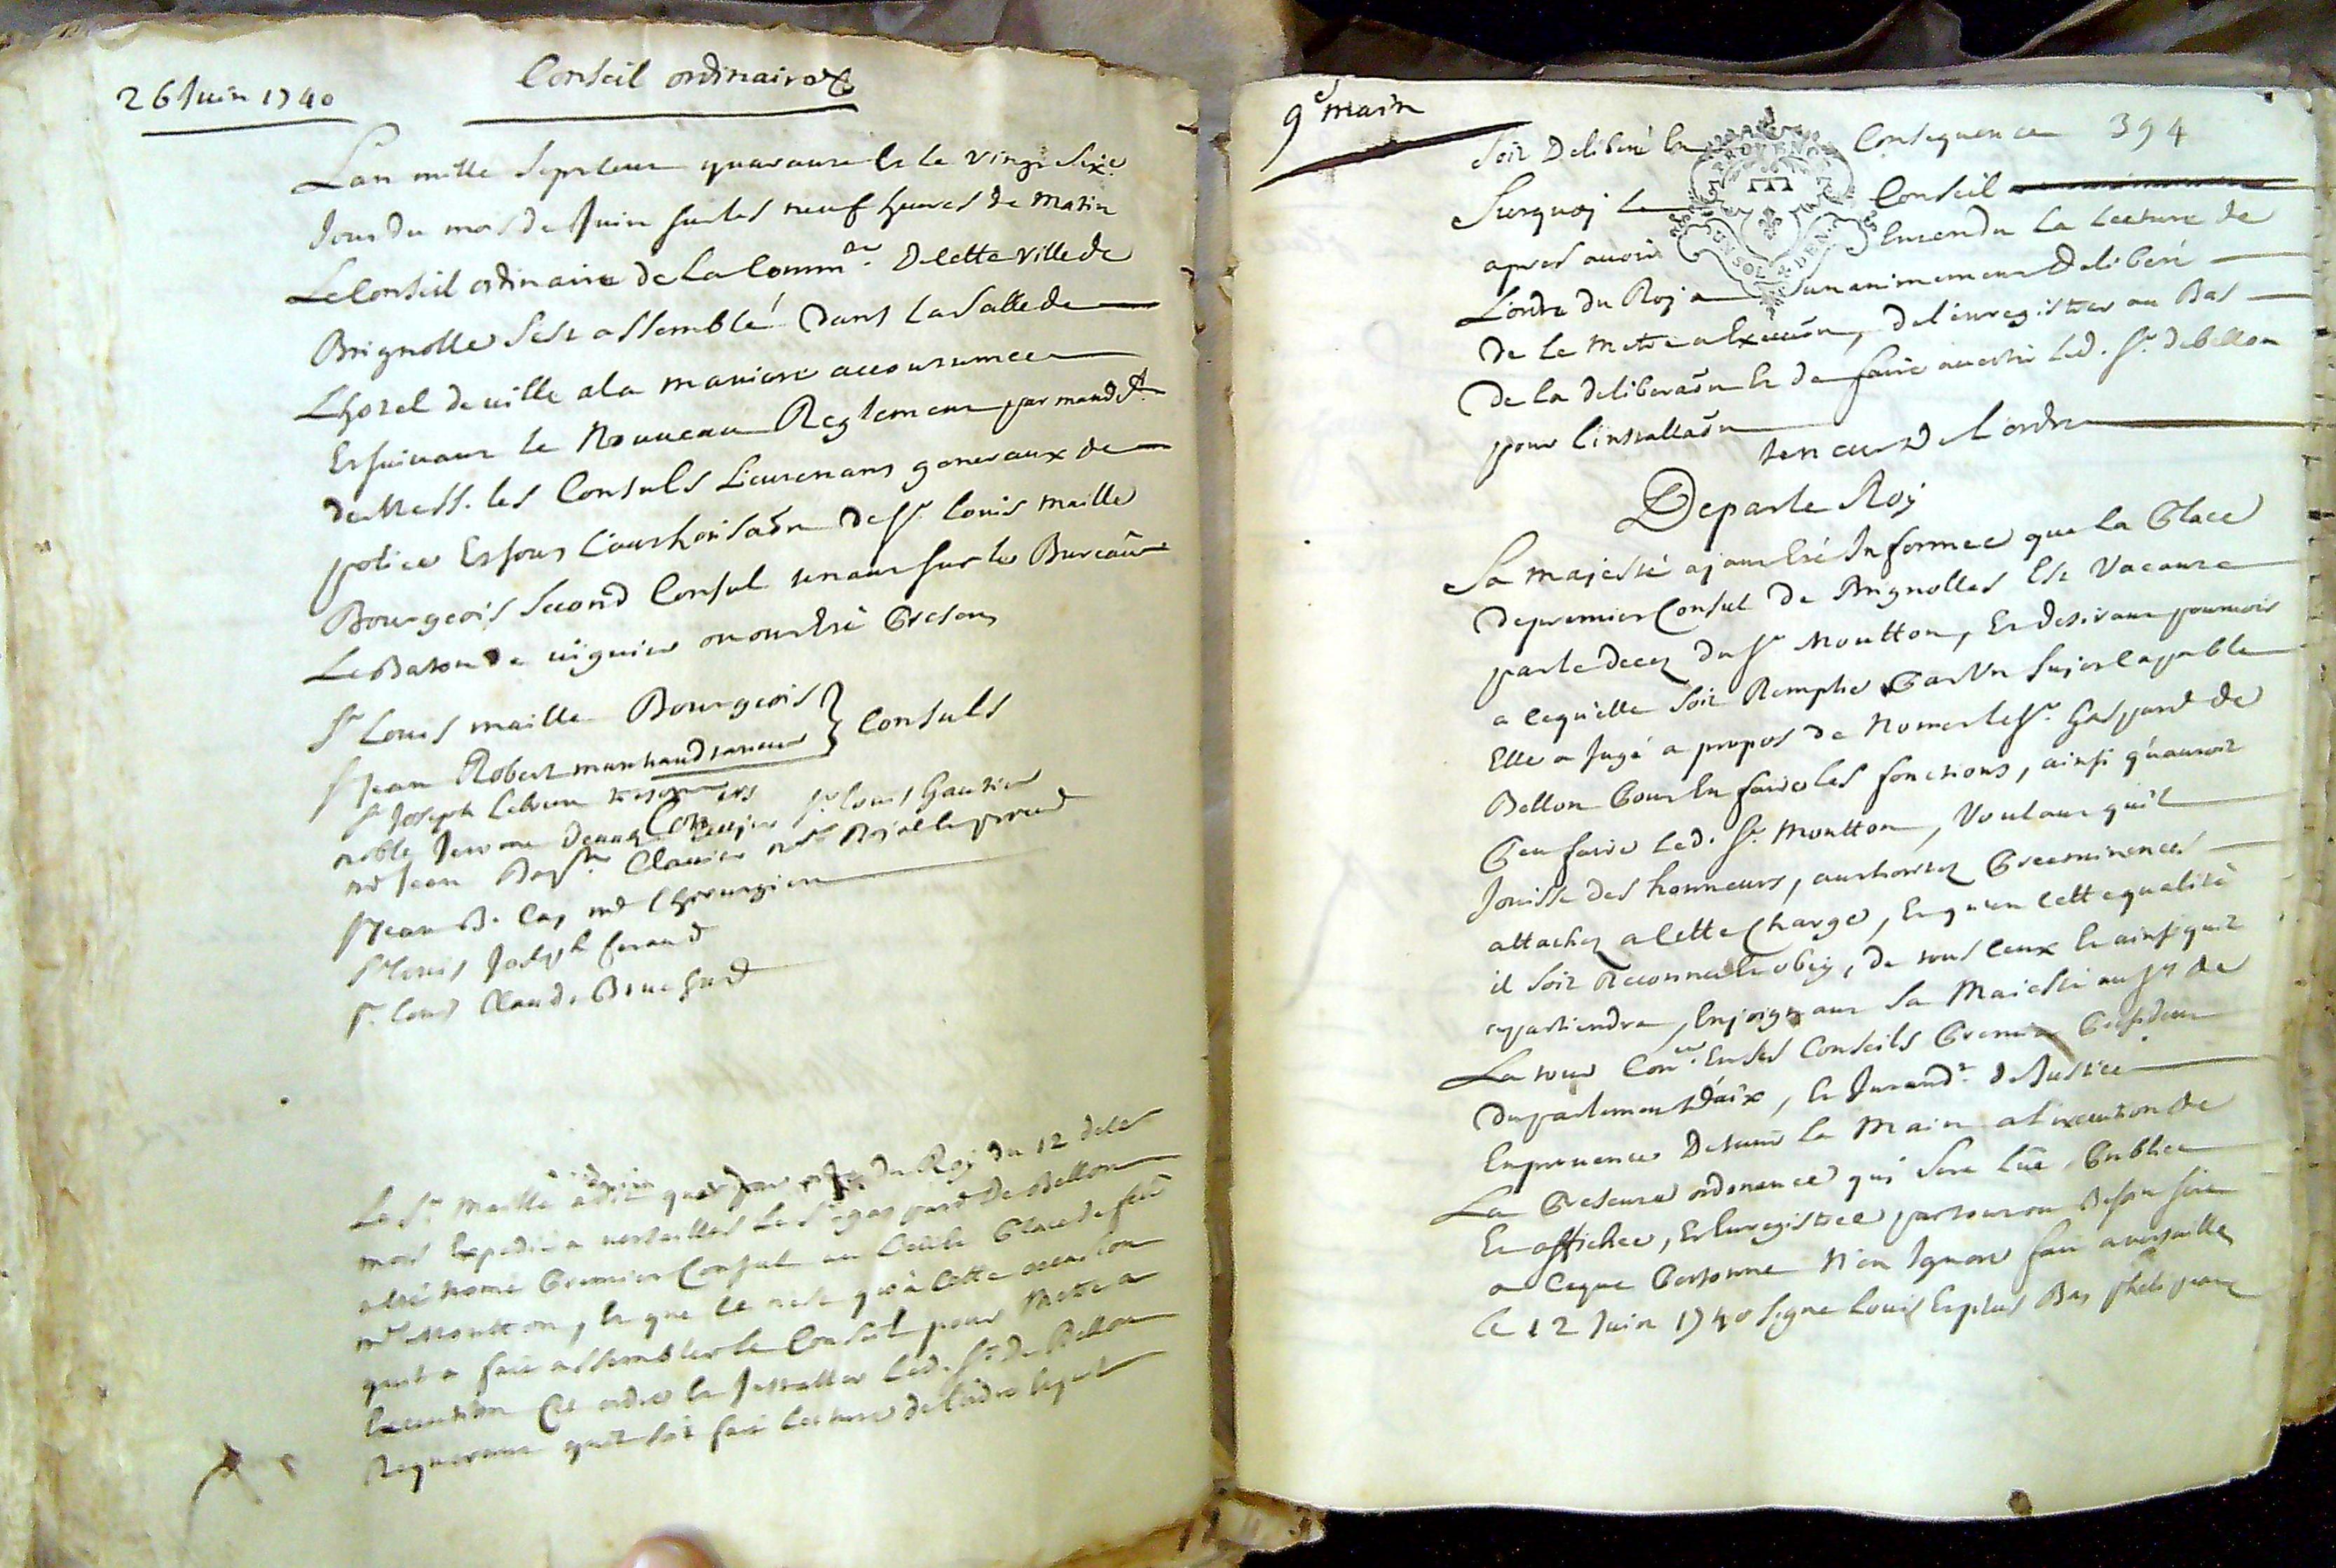 26 Juin 1740
Conseil ordinaire
Lan mille Septcent quarante Et le vingt Sixe.
Jour du mois de Juin sur les neuf heures de Matin
Le Conseil ordinaire de La Commté. De cette ville de
Brignolle Sest assemblé dans La Salle de
Lhotel de ville a la maniere accoutumee
Et suivant le Nouveau Reglement par mandt.
de Mess. les Consuls Lieutenans generaux de
police Et sous L'authorisaôn de Sr. Louis Maille
Bourgeois Second Consul tenant sur le Bureau
Le Baton de viguier on ont Eté Presens
Sr Louis maille Bourgeois
Sr Jean Robert marchand taneur } Consuls
Sr Joseph Lebrun tresorier
noble Jerome Sr. Louis Gautier
me Jean Bapte. Clavier nre Royal
Sr Jean B. Cas me Chirurgien
Sr Louis Joseph feraud
Sr. Louis Claude
Le Sr. Maille a dit que par ordre du Roy du 12 de ce
mois Expedié a versailles Le Sr gaspard De Bellon
a Eté nomé Premier Consul au Lieu Et Place de feu
me Moutton, Et que ce nest qu'a cette occasion
quil a fait assembler le Conseil pour Mettre a
Execution Cet ordre Et Installer Led. Sr. De Bellon
Requerant quil soit fait Lecture de l'ordre Et quil
9e main
394
Soit Deliberé En Consequence
Surquoy Le Conseil
apres avoir Entendu La Lecture de
L'ordre du Roy a unanimement Deliberé
De Le Mettre a Execuôn, de l'enregistrer au Bas
De la deliberaôn Et de faire avertir Led. Sr. de bellon
pour l'installaôn
teneur De L'ordre
De par le Roy
Sa Majesté ayant Eté Informee que la Place
de premier Consul de Brignolles Est Vacante
par le decez du Sr Moutton, Et desirant pourvoir
a ce qu'elle soit Remplie Par Un Sujet Capable
Elle a Jugé a propos de Nomer le Sr. Gaspard de
Bellon Pour En faire les fonctions, ainsi qu'auroit
Peu faire Led. Sr. Moutton, Voulant quil
Jouisse des honneurs, authoritez Preeminences
attachez a Cette Charge, Et qu'en Cette qualité
il soit Reconnu Et obey, de tous Ceux Et ainsi quil
apartiendra, Enjoignant Sa Majesté au Sr de
La tour Conler. En ses Conseils Premier President
du parlement d'aix, Et Intendt. de Justice
En provence De tenir la Main a l'execution de
La Presente ordonance qui Sera Lüe, Publiee
Et affichee, Et Enregistree partout ou Besoin sera
a Ceque Personne N'en Ignore fait a versailles
Le 12 Juin 1740 Signé Louis Et plus Bas phelipeaux